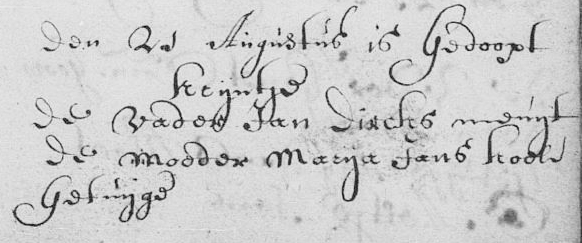 den 20 Augustus is Gedoopt
krijntje
de vader Jan Dircks meuijt
de modder Marya Jans
Getuijge